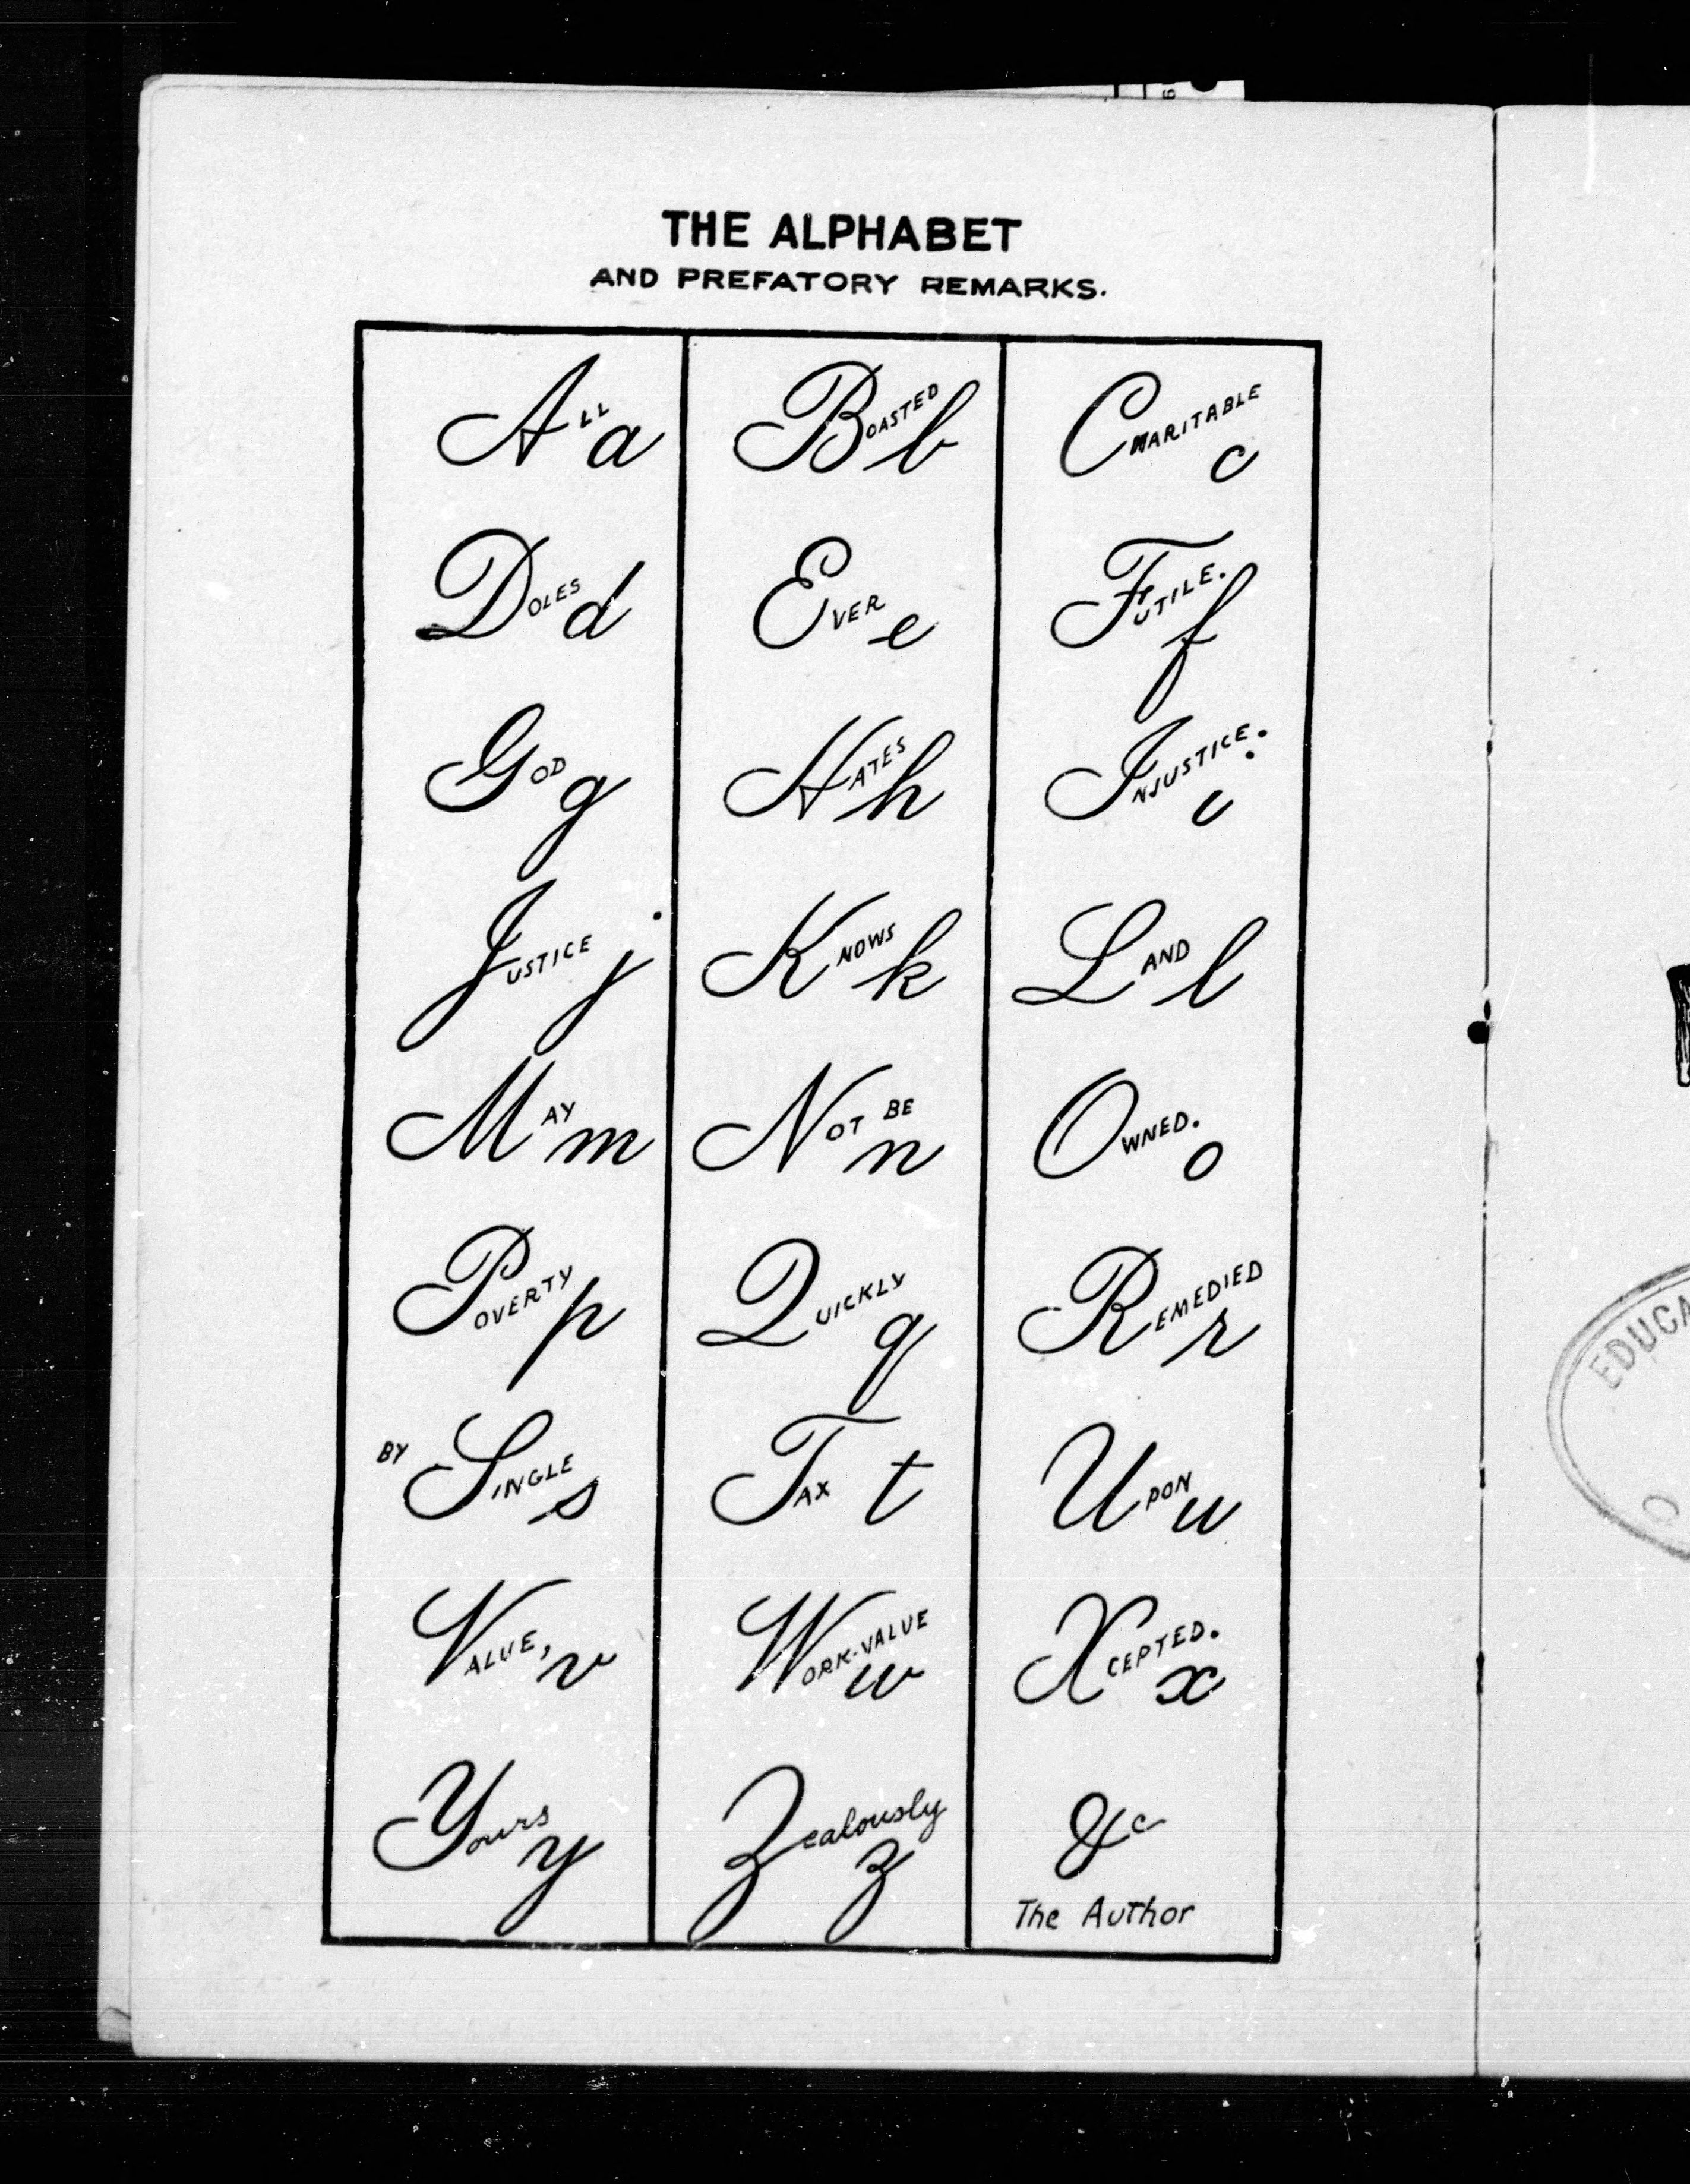 THE ALPHABET
AND PREFATORY REMARKS.
All a Boasted b Charitable c
Doles d Ever e Futile. f
God g Hates h Injustice. i
Justice j Knows k Land l
May m Not be n Owned. o
Poverty p Quickly q Remedied r
By Single s Tax t Upon u
Value, v Work-value w Xcepted. x
Yours y Zealously z &c
The Author
EDUCA